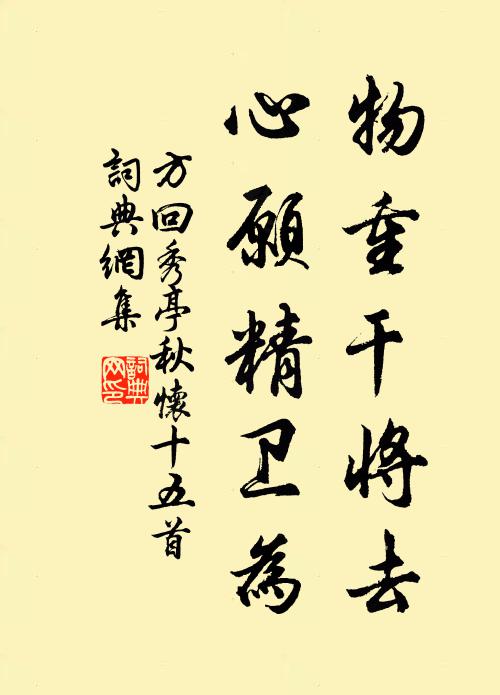 物重干將去
心願精卫為
方回秀亭秋懷十五首
詞典網集
詞典网印